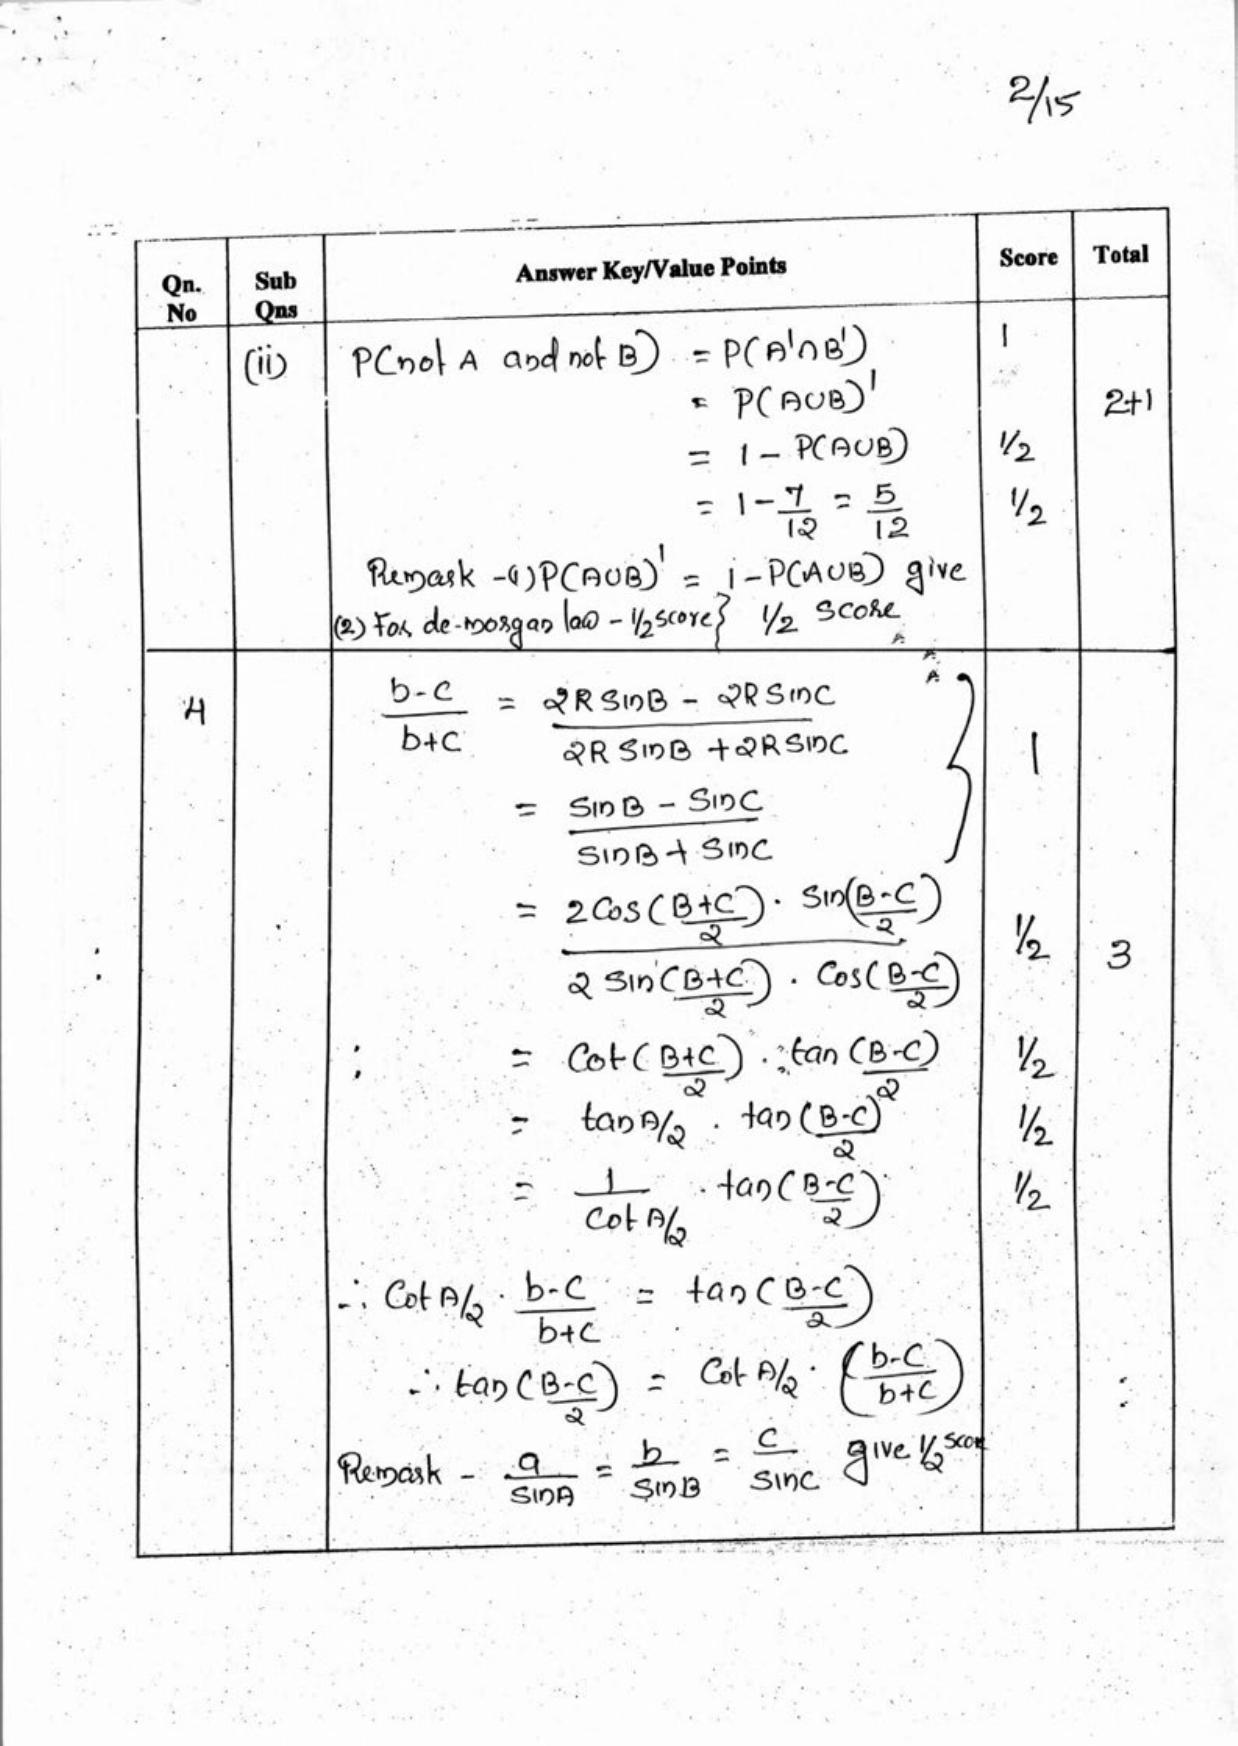 2/15
Qn. No | Sub Qns | Answer Key/Value Points | Score | Total
(ii) P(not A and not B) = P(A'∩B') 1
= P(A∪B)' 2+1
= 1 - P(A∪B) 1/2
= 1 - 7/12 = 5/12 1/2
Remark - (1) P(A∪B)' = 1 - P(A∪B) give
(2) For de-morgan law - 1/2 score } 1/2 score
4 (b-c)/(b+c) = (2R SinB - 2R SinC)/(2R SinB + 2R SinC) } 1
= (SinB - SinC)/(SinB + SinC)
= (2 Cos((B+C)/2) . Sin((B-C)/2))/(2 Sin((B+C)/2) . Cos((B-C)/2)) 1/2 3
= Cot((B+C)/2) . tan((B-C)/2) 1/2
= tan A/2 . tan((B-C)/2) 1/2
= 1/(Cot A/2) . tan((B-C)/2) 1/2
∴ Cot A/2 . (b-c)/(b+c) = tan((B-C)/2)
∴ tan((B-C)/2) = Cot A/2 . ((b-c)/(b+c))
Remark - a/SinA = b/SinB = c/SinC give 1/2 score